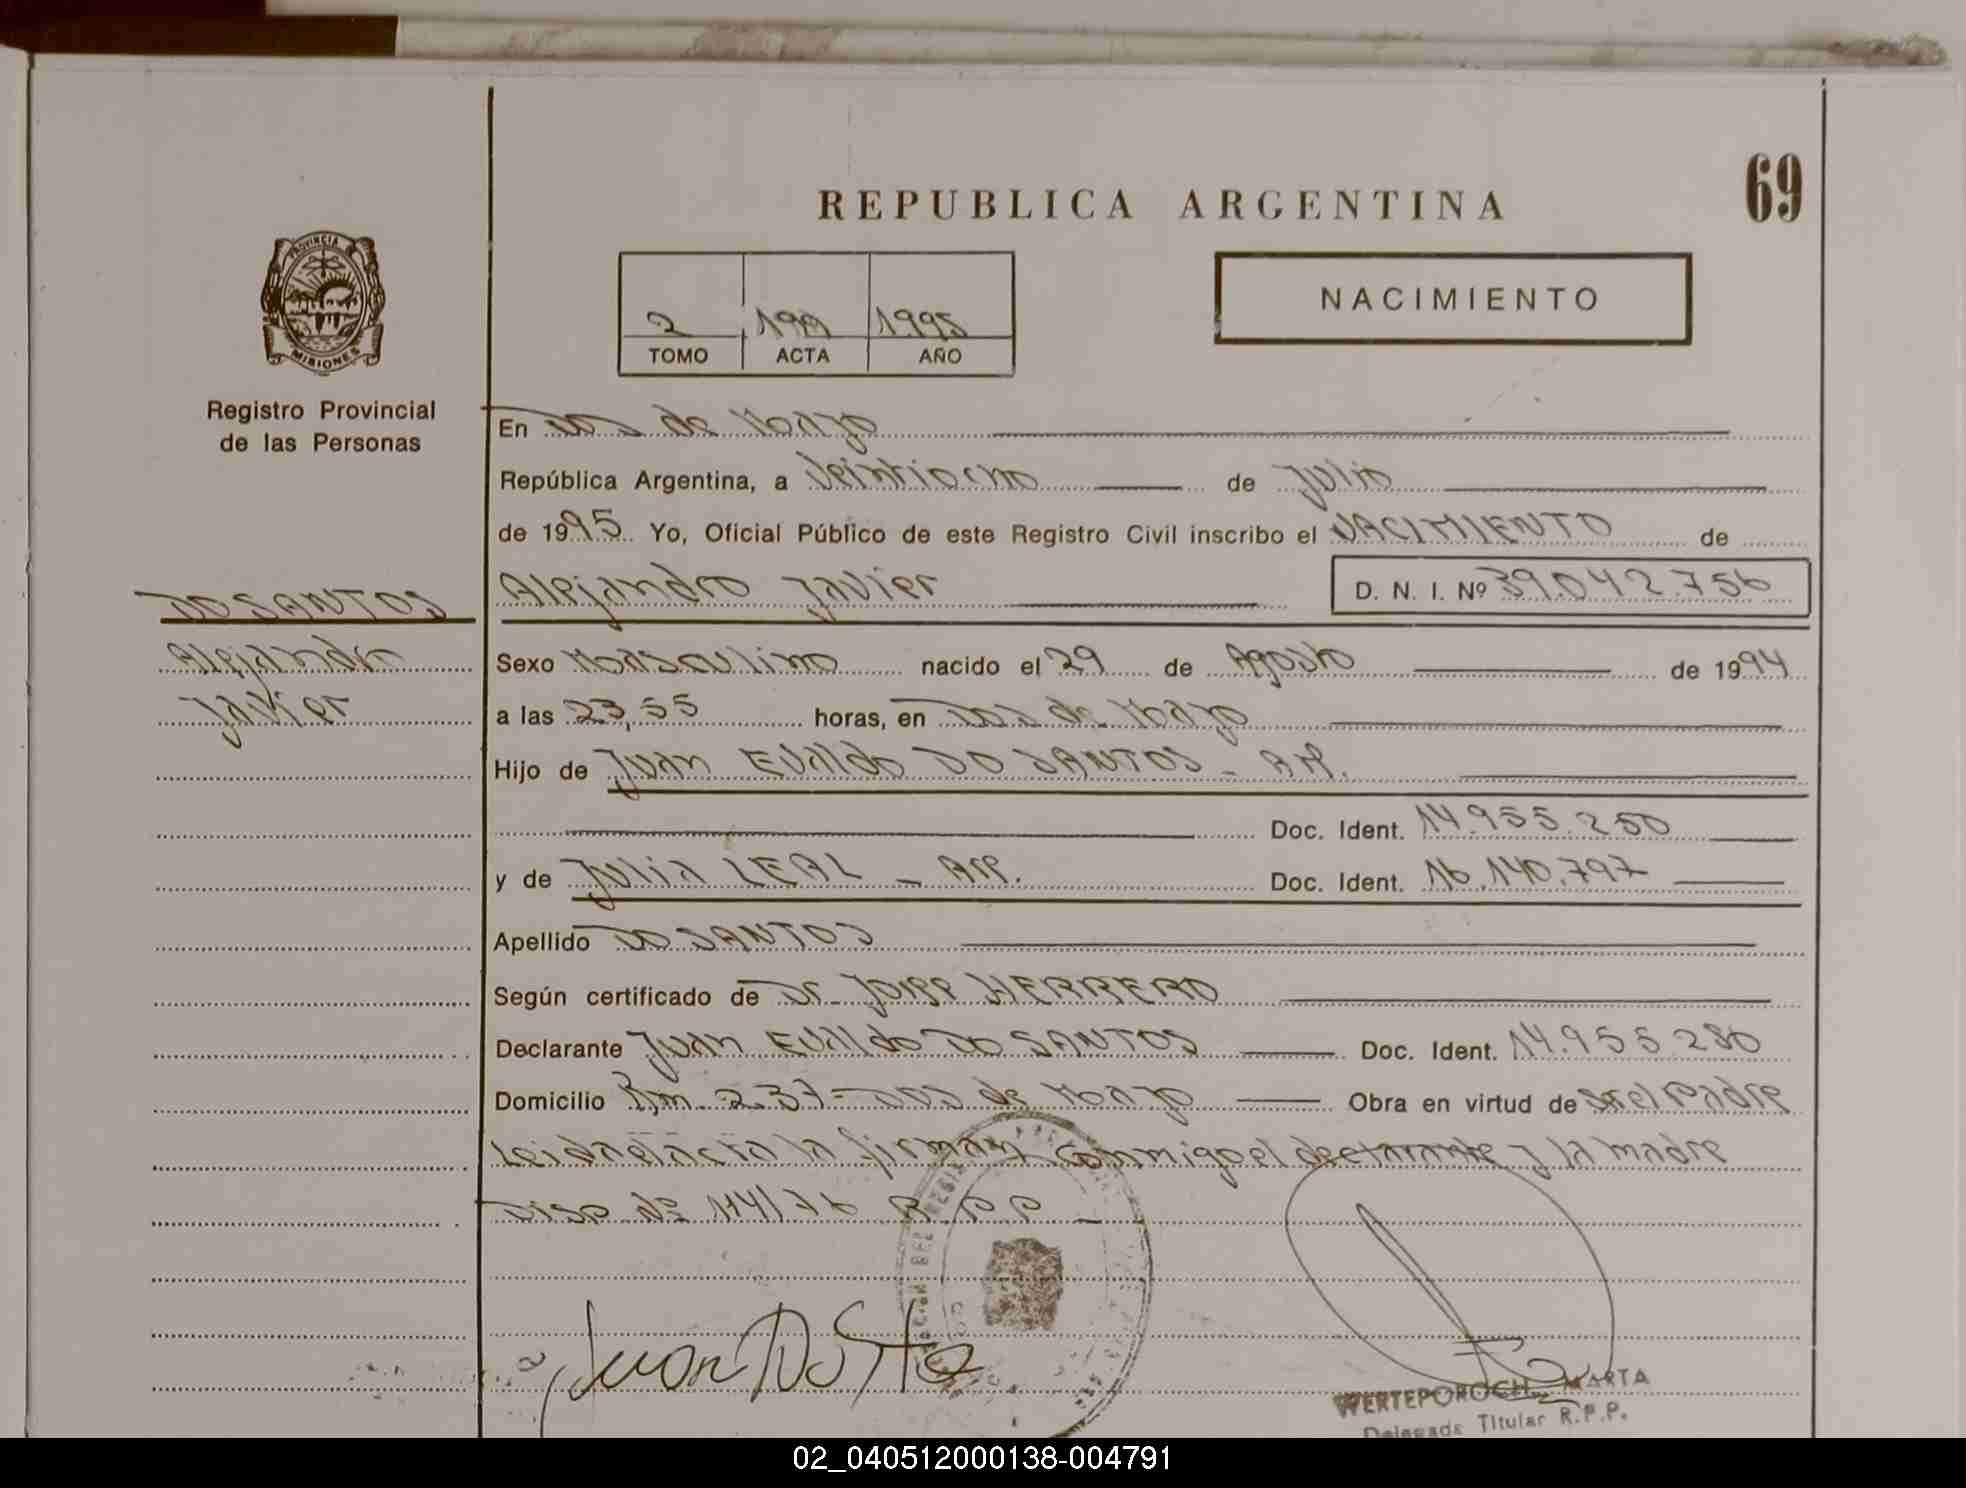 69
REPUBLICA ARGENTINA
NACIMIENTO
2 1995
TOMO ACTA AÑO
PROVINCIA DE
MISIONES
Registro Provincial
de las Personas
En Dos de Mayo
República Argentina, a Veintiocho de Julio
de 1995. Yo, Oficial Público de este Registro Civil inscribo el NACIMIENTO de
DO SANTOS
Alejandro
Javier
Alejandro Javier D. N. I. Nº 39.042.756
Sexo Masculino nacido el 29 de Agosto de 1994
a las 23,55 horas, en Dos de Mayo
Hijo de Juan Evaldo DO SANTOS - Ar.
Doc. Ident. 14.955.250
y de Julia LEAL - Ar. Doc. Ident. 16.140.797
Apellido DO SANTOS
Según certificado de Dr. Jorge HERRERO
Declarante Juan Evaldo DO SANTOS Doc. Ident. 14.955.280
Domicilio Km. 237 - Dos de Mayo Obra en virtud de ser el Padre
Leida el acta la firman conmigo el declarante y la madre
Disp Nº 114/76 R.P.P -
Juan Do Sto
WERTEPOROCH MARTA
Delegada Titular R.P.P.
02_040512000138-004791